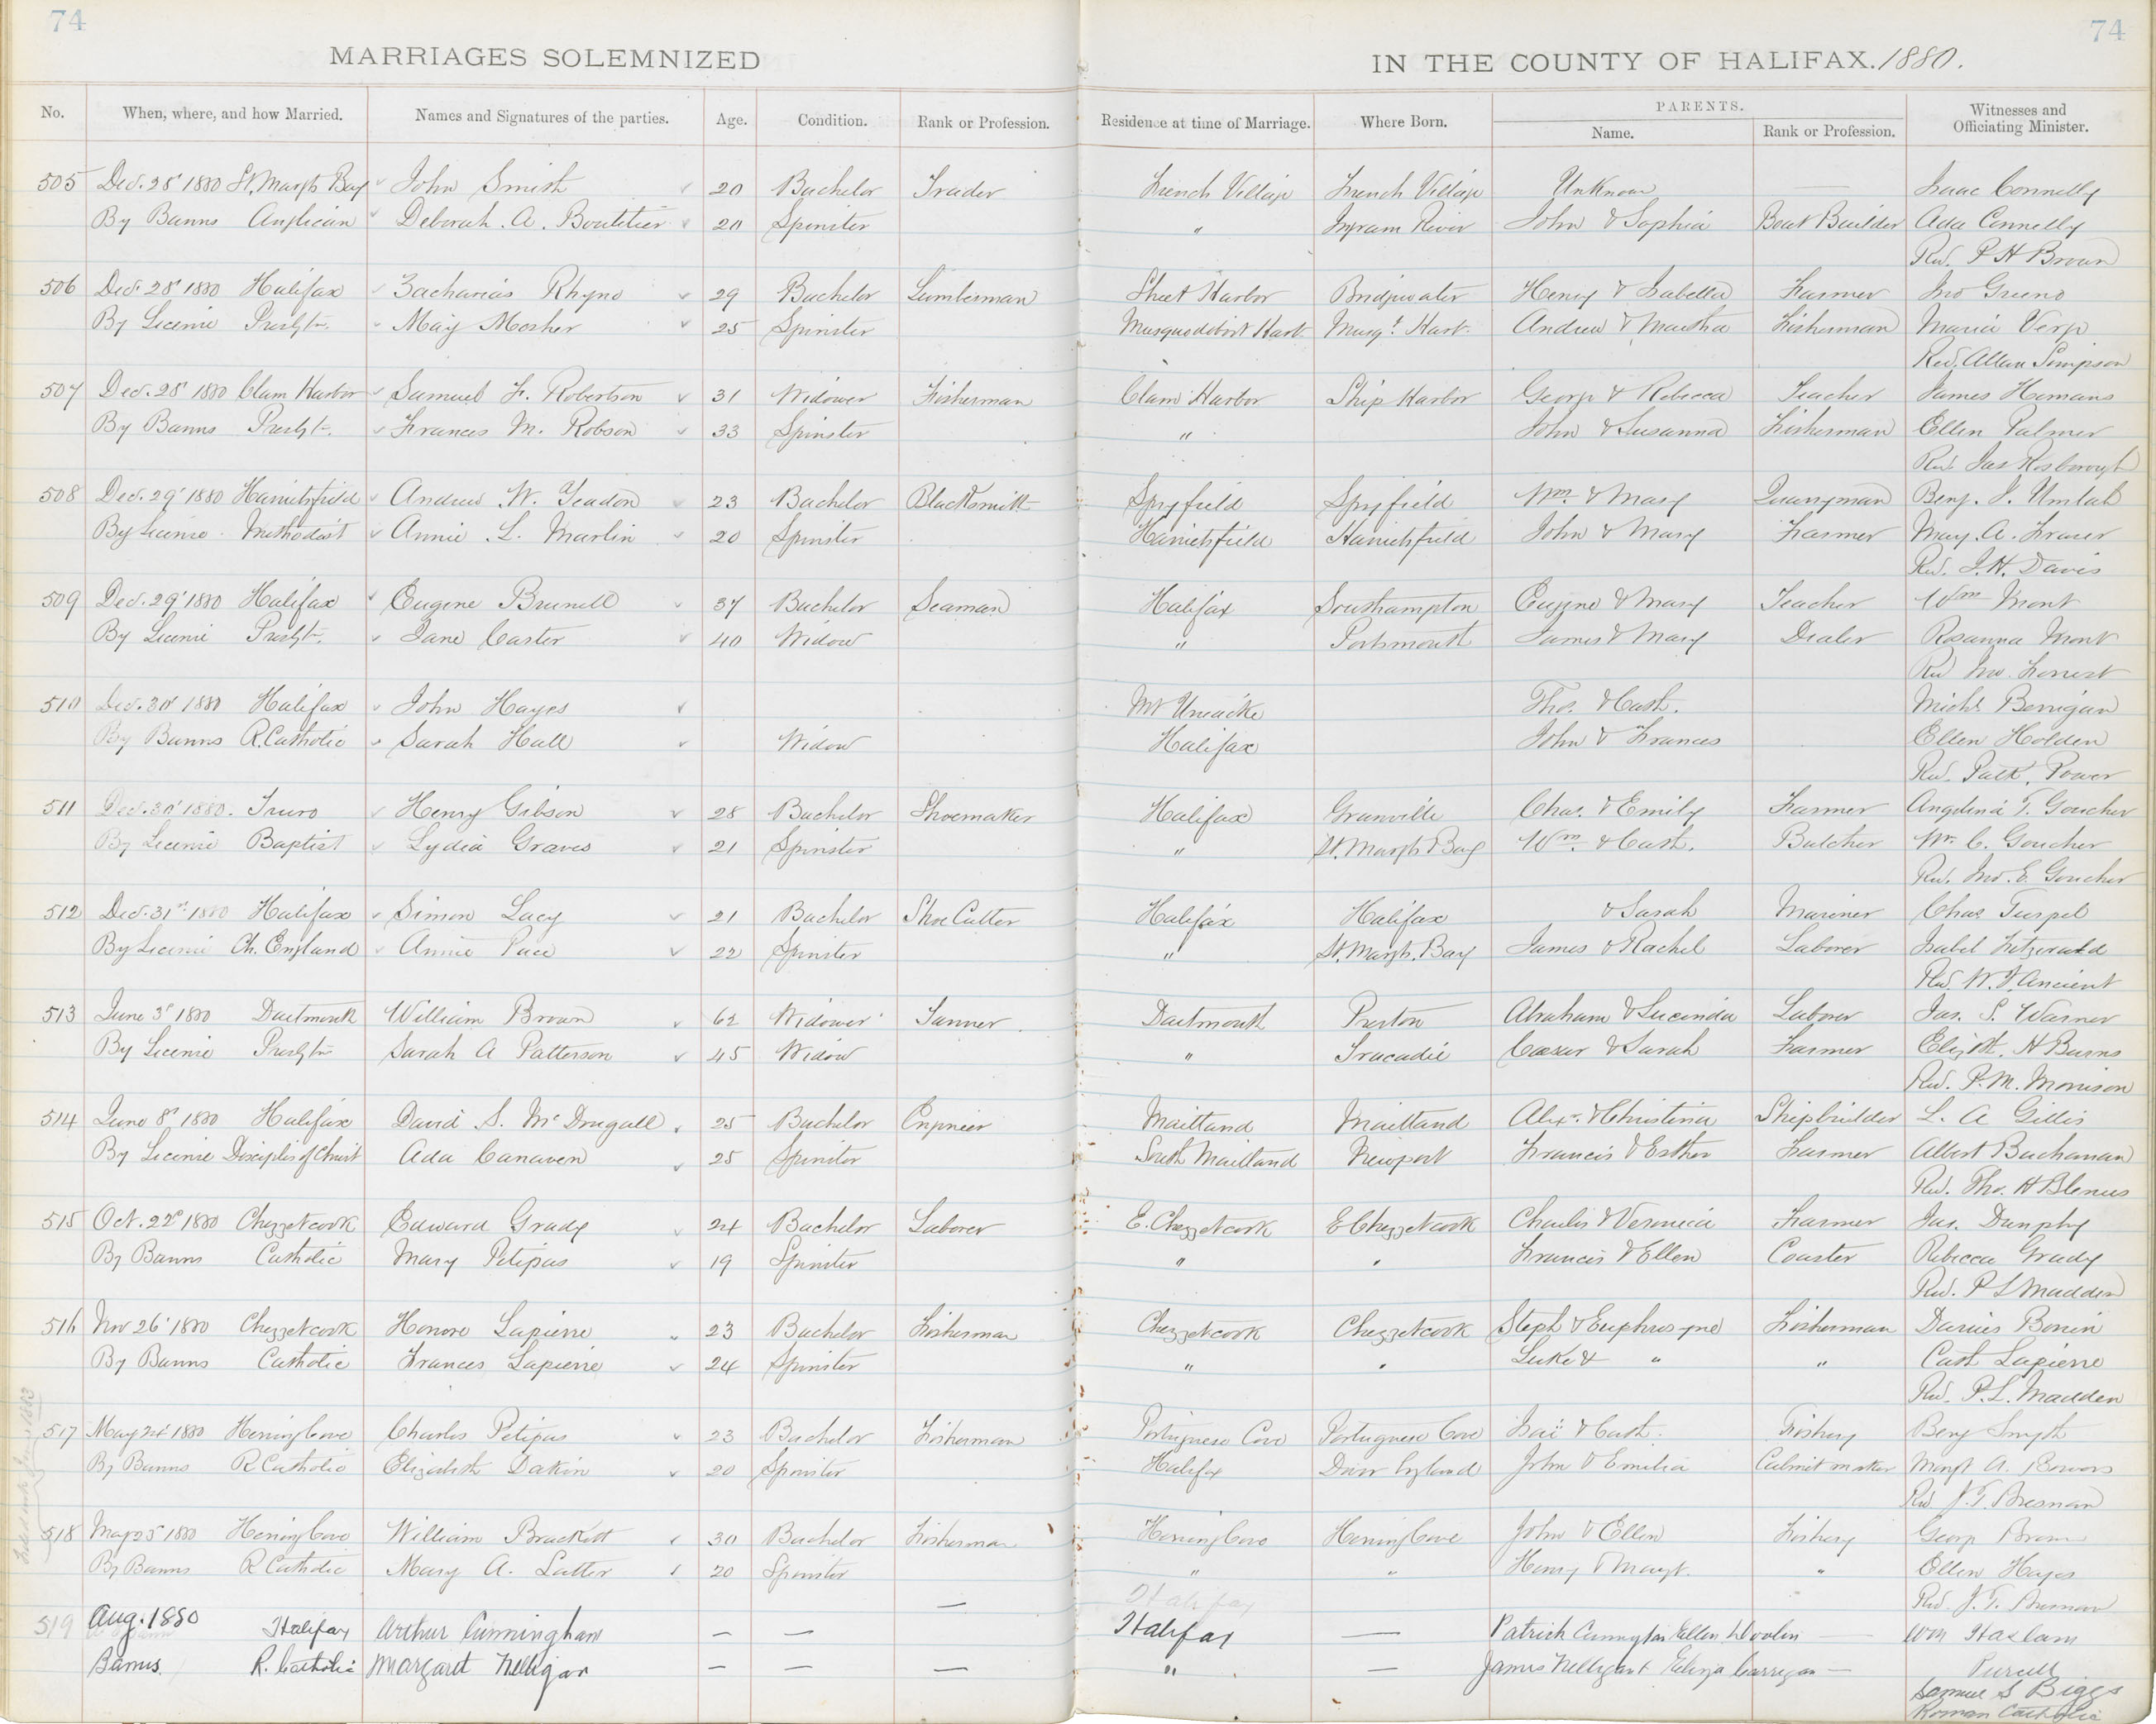 74
74
MARRIAGES SOLEMNIZED IN THE COUNTY OF HALIFAX. 1880.
No. When, where, and how Married. Names and Signatures of the parties. Age. Condition. Rank or Profession. Residence at time of Marriage. Where Born. PARENTS. Name. Rank or Profession. Witnesses and Officiating Minister.
505 Dec. 28' 1880 St. Margts Bay John Smith 20 Bachelor Trader French Village French Village Unknown — Isaac Connelly
By Banns Anglican Deborah. A. Boutilier 20 Spinster " Ingram River John & Sophia Boat Builder Ada Connelly
Rev. P H Brown
506 Dec. 28' 1880 Halifax Zacharias Rhyno 29 Bachelor Lumberman Sheet Harbor Bridgwater Henry & Isabella Farmer Jno Greeno
By License Presbtn. May Mosher 25 Spinster Musquodoboit Harb. Musqt. Harb. Andrew & Martha Fisherman Maria Verge
Rev. Allan Simpson
507 Dec. 28' 1880 Clam Harbor Samuel F. Robertson 31 Widower Fisherman Clam Harbor Ship Harbor George & Rebecca Teacher James Homans
By Banns Presbtn. Frances M. Robson 33 Spinster " John & Susanna Fisherman Ellen Palmer
Rev. Jas Rosborough
508 Dec. 29' 1880 Harrietsfield Andrew W. Yeadon 23 Bachelor Blacksmith Spryfield Spryfield Wm & Mary Quarryman Benj. J. Umlah
By License Methodist Annie L. Marlin 20 Spinster Harrietsfield Harrietsfield John & Mary Farmer May. A. Fraser
Rev. J. H. Davis
509 Dec. 29' 1880 Halifax Eugene Brunell 37 Bachelor Seaman Halifax Southampton Eugene & Mary Teacher Wm Mont
By License Presbtn. Jane Caster 40 Widow " Portsmouth James & Mary Dealer Rosanna Mont
Rev Jno. Forrest
510 Dec. 30' 1880 Halifax John Hayes Mt Uniacke Tho. & Cath. Michl Berrigan
By Banns R. Catholic Sarah Hall Widow Halifax John & Frances Ellen Holden
Rev. Patk. Power
511 Dec. 30' 1880. Truro Henry Gibson 28 Bachelor Shoemaker Halifax Granville Chas. & Emily Farmer Angelina T. Goucher
By License Baptist Lydia Graves 21 Spinster " St. Margts Bay Wm. & Cath. Butcher Wm. C. Goucher
Rev. Jno. E. Goucher
512 Dec. 31st 1880 Halifax Simon Lacy 21 Bachelor Shoe Cutter Halifax Halifax & Sarah Mariner Chas Turpel
By License Ch. England Annie Pace 22 Spinster " St. Margts. Bay James & Rachel Laborer Isabel Fitzerald
Rev. W. J. Ancient
513 June 3d 1880 Dartmouth William Brown 62 Widower Tanner Dartmouth Preston Abraham & Lucinda Laborer Jas. S. Warner
By License Presbtn Sarah A Patterson 45 Widow " Tracadie Caesar & Sarah Farmer Elizth. H Burns
Rev. P. M. Morrison
514 June 8' 1880 Halifax David S. McDougall 25 Bachelor Engineer Maitland Maitland Alexr. & Christina Shipbuilder L. A Gillis
By License Disciples of Christ Ada Canaven 25 Spinster South Maitland Newport Francis & Esther Farmer Albert Buchanan
Rev. Tho. H Blenus
515 Oct. 22d 1880 Chezzetcook Edward Grady 24 Bachelor Laborer E. Chezzetcook E Chezzetcook Charles & Veronica Farmer Jas. Dunphy
By Banns Catholic Mary Petipas 19 Spinster " " Francis & Ellen Coaster Rebecca Grady
Rev. P L Madden
516 Nov 26' 1880 Chezzetcook Honore Lapierre 23 Bachelor Fisherman Chezzetcook Chezzetcook Steph & Euphrosyne Fisherman Darius Bonin
By Banns Catholic Frances Lapierre 24 Spinster " " Luke & " " Cath Lapierre
Rev. P. L. Madden
517 May 24' 1880 Herring Cove Charles Petipas 23 Bachelor Fisherman Portuguese Cove Portuguese Cove & Cath. Fishery Benj Smyth
By Banns R Catholic Elizabeth Dakin 20 Spinster Halifax England John & Emilia Cabinet maker Margt A. Bowers
Rev. J. T. Bresnan
518 May 25' 1880 Herring Cove William Brackett 30 Bachelor Fisherman Herring Cove Herring Cove John & Ellen Fishery George Brown
By Banns R Catholic Mary A. Latter 20 Spinster " " Henry & Margt. " Ellen Hayes
Rev. J. T. Bresnan
Halifax
519 Aug. 1880 Halifax Arthur Cunningham — — — Halifax — Patrick Ellen — Wm Haslam
Banns R. Catholic Margaret Nelligan — — — " — James Eliza Carrigan — Purcell
Samuel S Biggs
Roman Catholic